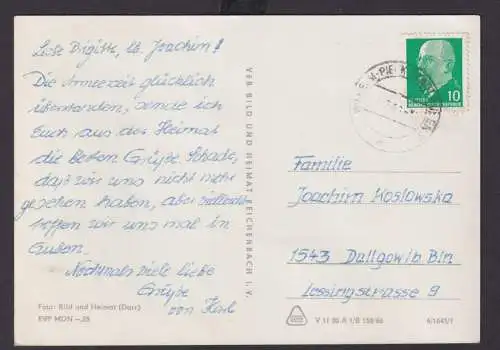 Liebe Brigitte, lb. Joachim!
Die Armeezeit glücklich
überstanden, sende ich
Euch aus der Heimat
die besten Grüße. Schade,
daß wir uns nicht mehr
gesehen haben, aber vielleicht
treffen wir uns mal in
Guben.
Nochmals viele liebe
Grüße
von Karl
Foto: Bild und Heimat (Darr)
EVP MDN —,25
VEB BILD UND HEIMAT REICHENBACH I. V.
10
Familie
Joachim Koslowska
1543 Dallgow ib Bln
Lessingstraße 9
V 11 50 A 1/B 158/66
6/1645/1